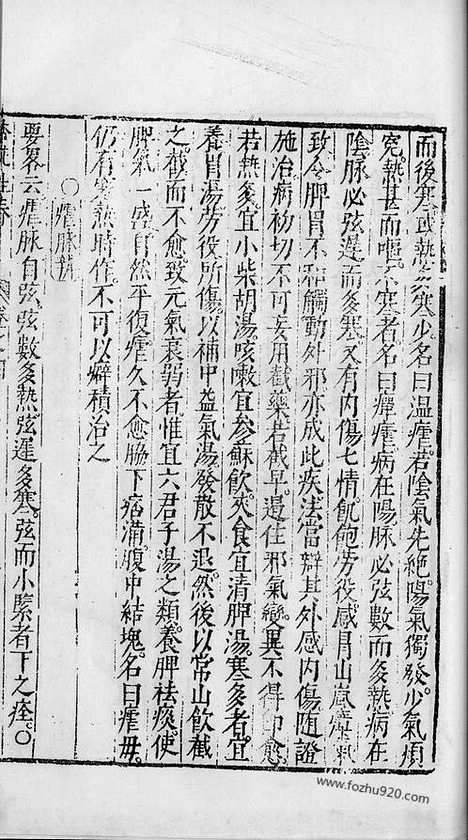 而後寒或熱多寒少名曰温瘧若陰氣先絶陽氣獨發少氣煩
寃熱甚而嘔不寒者名曰癉瘧病在陽脉必弦數而多熱病在
陰脉必弦遲而多寒又有内傷七情飢飽勞役感冒山嵐瘴氣
致令脾胃不和觸動外邪亦成此疾法當辯其外感内傷隨證
施治病初切不可妄用截藥若截早邉住邪氣變異不得即愈
若熱多宜小柴胡湯咳嗽宜參蘇飲夾食宜清脾湯寒多者宜
養胃湯勞役所傷以補中益氣湯發散不退然後以常山飲截
之截而不愈致元氣衰弱者惟宜六君子湯之類養脾祛痰使
脾氣一盛自然平復瘧久不愈脇下痞滿腹中結塊名曰瘧毋
仍有寒熱時作不可以癖積治之
○瘧脉訣
要畧云瘧脉自弦弦數多熱弦遲多寒弦而小緊者下之痊○
www.fozhu920.com